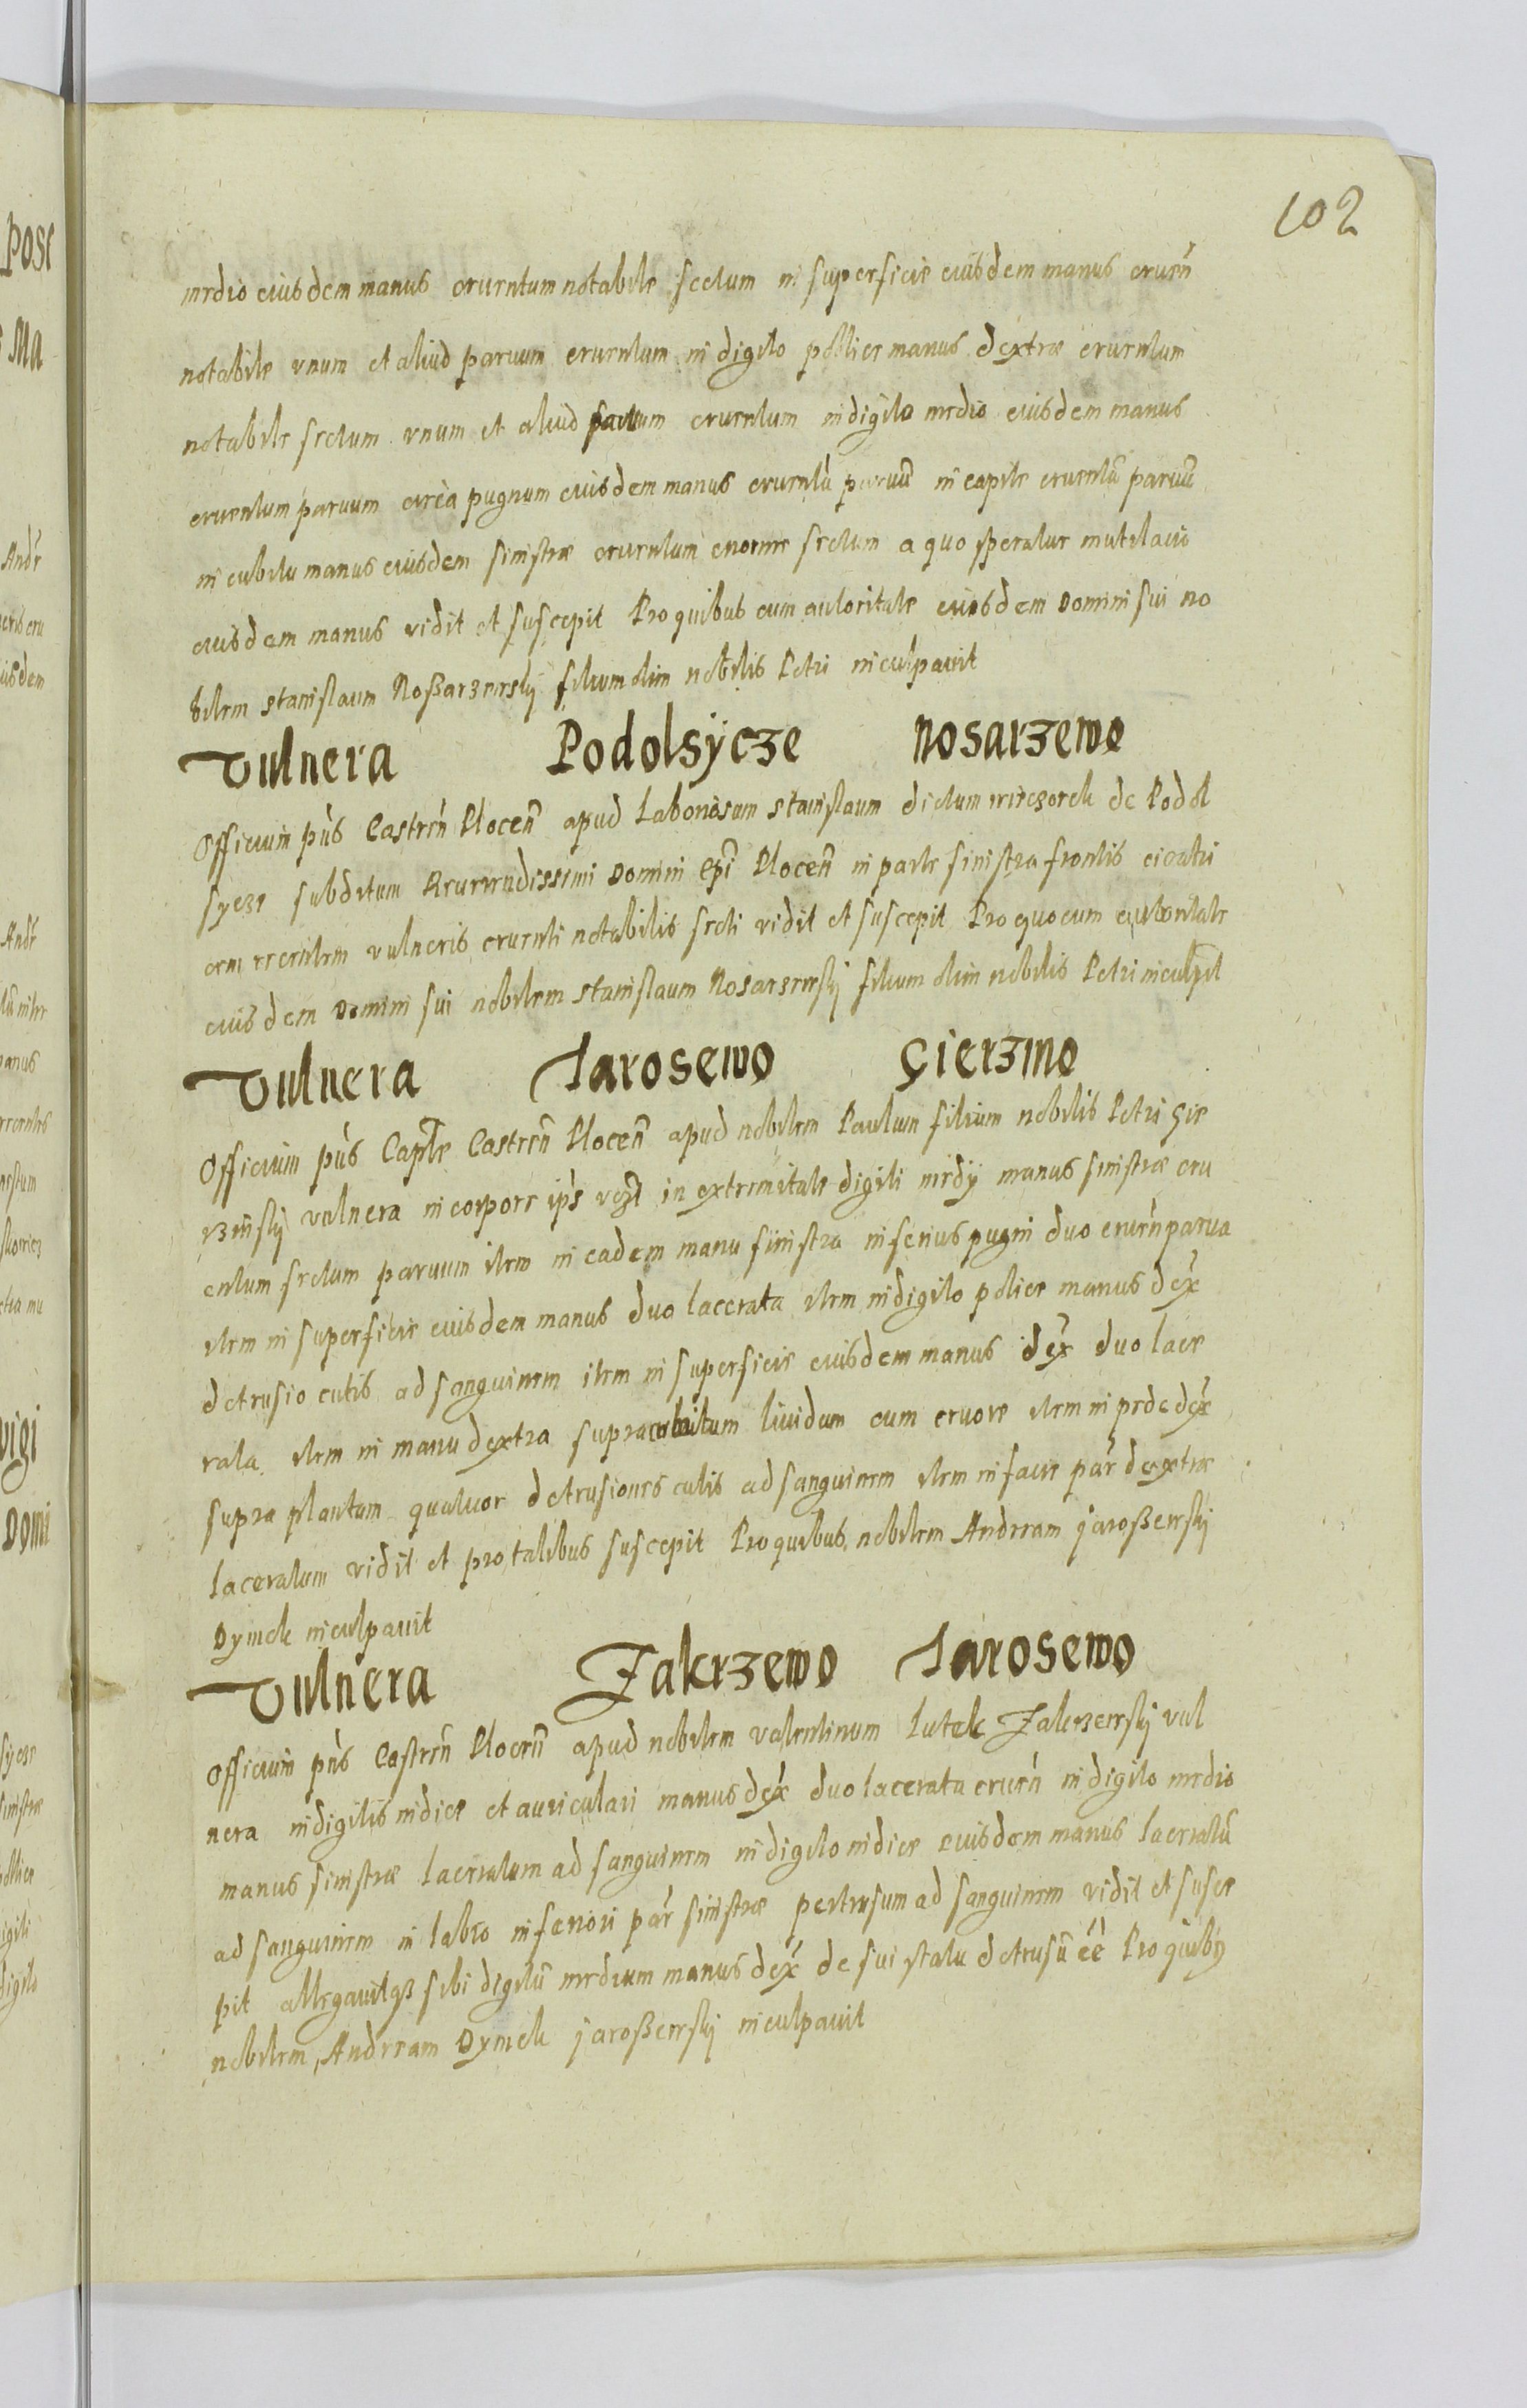 102
medio eiusdem manus cruentum notabile sectum in superficie eiusdem manus cruen̄
notabile vnum et aliud paruum cruentum in digito pollice manus dextrae cruentum
notabile sectum vnum et aliud paruum cruentum in digito medio eiusdem manus
cruentum paruum circa pugnum eiusdem manus cruentū paruū in capite cruentū paruū
in cubitu manus eiusdem sinistrae cruentum enorme sectum a quo speratur mutilacio
eiusdem manus vidit et suscepit Pro quibus cum autoritate eiusdem Domini sui no
bilem stanislaum Noßarzewskÿ filium olim nobilis Petri inculpauit
Vulnera Podolsÿcze Nosarzewo
Officium pn̄s Castren̄ Plocen̄ apud Laboriosum stanislaum dictum wieczorek de Podol
sycze subditum Reuerendissimi Domini Ep̄i Plocen̄ in parte sinistra frontis cicatri
cem recentem vulneris cruenti notabilis secti vidit et suscepit Pro quo cum autoritate
eiusdem Domini sui nobilem stanislaum Nosarzewskÿ filium olim nobilis Petri inculpt
Vulnera Jarosewo Gierzmo
Officium pn̄s Captle Castren̄ Plocen̄ apud nobilem Paulum filium nobilis Petri Gie
rzmskÿ vulnera in corpore ip̄s vczt in extremitate digiti medÿ manus sinistrae cru
entum sectum paruum item in eadem manu sinistra inferius pugni duo cruen̄ parua
item in superficie eiusdem manus duo lacerata item in digito police manus dex̄
detrusio cutis ad sanguinem item in superficie eiusdem manus dex̄ duo lace
rata item in manu dextra supra cubitum liuidum cum cruore item in pede dex̄
supra plantam quatuor detrusiones cutis ad sanguinem item in facie par̄ dextrae
laceratum vidit et pro talibus suscepit Pro quibus nobilem Andream jaroßewskÿ
Dymek inculpauit
Vulnera Zakrzewo Jarosewo
Officium pn̄s Castren̄ Plocen̄ apud nobilem valentinum Lutek Zakrzewskÿ vul
nera in digitis indice et auriculari manus dex̄ duo lacerata cruen̄ in digito medio
manus sinistrae laceratum ad sanguinem in digito indice eiusdem manus laceratū
ad sanguinem in labro inferiori par̄ sinistrae pertusum ad sanguinem vidit et susce
pit allegauitqз sibi digitū medium manus dex̄ de sui statu detrusū eē Pro quibꝰ
nobilem Andream Dymek jaroßewskÿ inculpauit